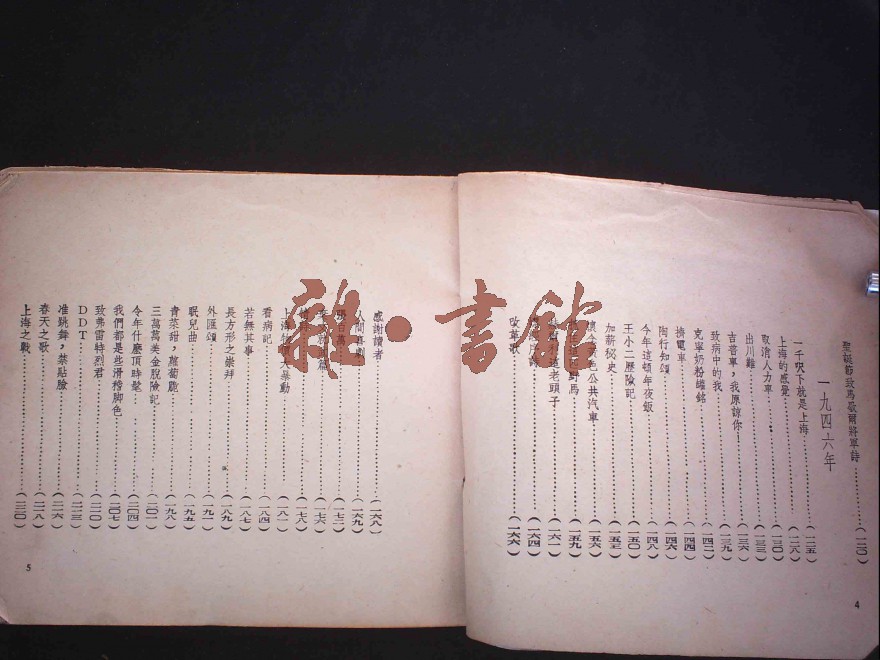 聖誕節致馬歇爾將軍詩……(一二〇)
一九四六年
一千呎下就是上海……(一二五)
上海的感覺……(一二八)
取消人力車……(一三〇)
出川難……(一三三)
吉普車，我原諒你……(一三六)
致病中的我……(一三九)
克寧奶粉罐銘……(一四二)
擠電車……(一四四)
陶行知頌……(一四六)
今年這頓年夜飯……(一四八)
王小二歷險記……(一五〇)
加薪秘史……(一五三)
公共汽車……(一五六)
野馬……(一五九)
這老頭子……(一六一)
……(一六四)
歌……(一六六)
4
感謝讀者……(一六八)
人間喜劇……(一六九)
張百萬……(一七二)
篇……(一七六)
……(一七八)
上海大暴動……(一八一)
看病記……(一八四)
若無其事……(一八七)
長方形之崇拜……(一八九)
外匯頌……(一九一)
眠兒曲……(一九五)
青菜甜，蘿蔔脆……(一九八)
三萬萬美金脫險記……(二〇一)
今年什麼頂時髦……(二〇四)
我們都是些滑稽脚色……(二〇七)
致弗雷特烈君……(二一〇)
DDT……(二一三)
准跳舞，禁貼臉……(二一六)
春天之歌……(二一八)
上海之戰……(二二〇)
5
雜·書館